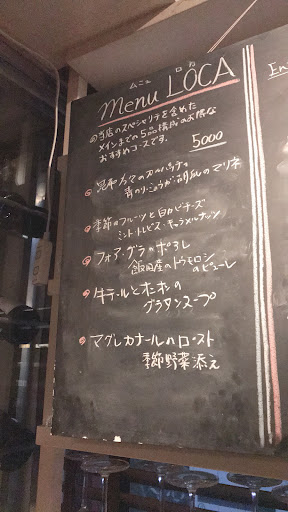 ムニュ ロカ
Menu LOCA
当店のスペシャリテを含めた
メインまでの5品構成のお得な
おすすめコースです。
5000
昆布〆のカルパッチョ
青のり・ショウガ・胡瓜のマリネ
季節のフルーツと白カビチーズ
ミント・トレビス・キャラメルナッツ
フォア・グラのポワレ
飯田産のトウモロコシ
のピューレ
牛テールとオニオンの
グラタンスープ
マグレカナールのロースト
季節野菜添え
En